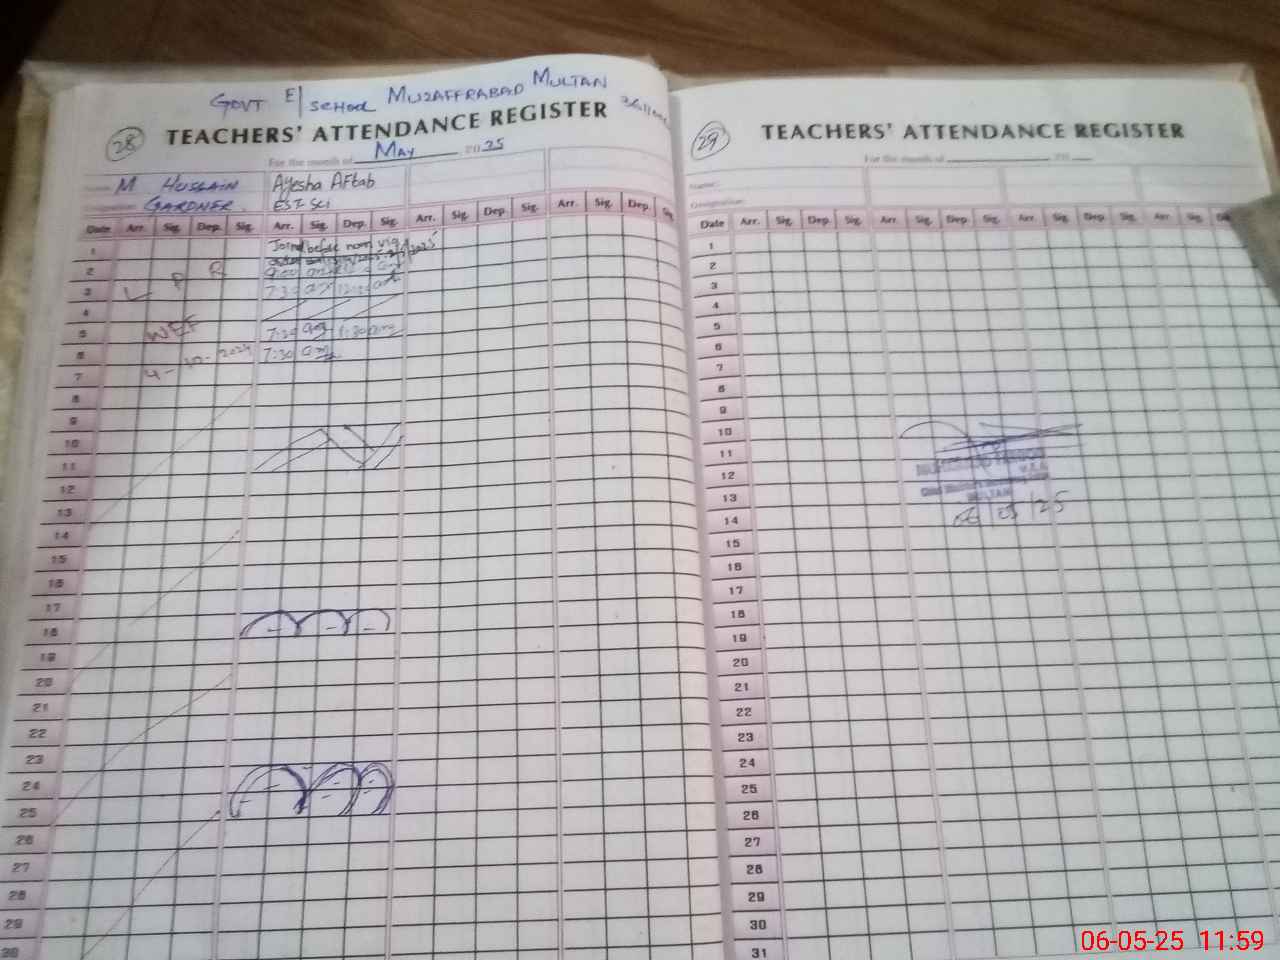 GOVT E/SCHOOL MUZAFFRABAD MULTAN
28 TEACHERS' ATTENDANCE REGISTER
For the month of May 2025
M HUSSAIN Ayesha Aftab
GARDNER. EST Sci
Date Arr. Sig. Dep. Sig. Arr. Sig. Dep. Sig. Arr. Sig. Dep. Sig. Arr. Sig. Dep. Sig.
1
2 9:00
L P R
3 7:30 am 12:00
4
WEF
5 7:30 1:30
6 7:30 am
4-10-2024
7
8
9
10
11
12
13
14
15
16
17
18
19
20
21
22
23
24
25
26
27
28
29
30
29 TEACHERS' ATTENDANCE REGISTER
For the month of 20
Name:
Designation:
Date Arr. Sig. Dep. Sig. Arr. Sig. Dep. Sig. Arr. Sig. Dep. Sig. Arr. Sig.
1
2
3
4
5
6
7
8
9
10
11
12
13
MULTAN
14
06/05/25
15
16
17
18
19
20
21
22
23
24
25
26
27
28
29
30
31
06-05-25 11:59